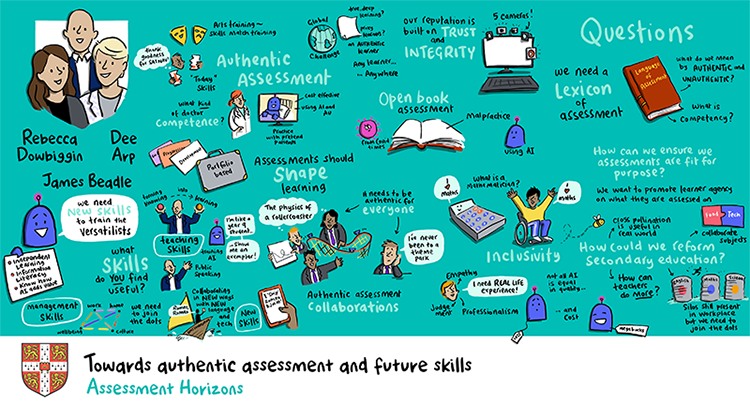 Rebecca
Dowbiggin
Dee
Arp
James Beadle
Arts training ~
skills match training
thank
goodness
"Today"
skills
Authentic
Assessment
Global
Challenge
true, deep
learning?
an AUTHENTIC
learner
Any learner...
... Anywhere
our reputation is
built on TRUST
and
INTEGRITY
5 cameras!
what kind
of doctor
COMPETENCE?
Cost effective
using AI and
Practice
with pretend
patients
Portfolio
based
Open book
assessment
malpractice
using AI
Questions
we need a
Lexicon
of
assessment
Language
of
Assessment
What do we mean
by AUTHENTIC and
UNAUTHENTIC?
What is
competency?
we need
NEW SKILLS
to train the
Versatilists
Independent
Learning
Information
Literacy
Know how
AI adds value
what
SKILLS
do YOU find
useful?
management
skills
work
wellbeing
culture
we need
to join
the dots
→ learning
teaching
skills
Public
Speaking
Collaborating
in NEW ways
with NEW
language
and
tech
New
Skills
Assessments should
SHAPE
learning
I'm like a
year 9
student..
...show me an
exemplar!
The physics of
a rollercoaster
it needs to be
authentic for
everyone
I've never
been to a
theme
park
Authentic assessment
Collaborations
I
♥
maths
What is a
Mathematician?
I
♥
maths
Inclusivity
Empathy
Judgement
I need REAL LIFE
experience!
Professionalism
not all AI
is equal
in quality...
... and
Cost
megabucks
How can we ensure we
assessments are fit for
purpose?
We want to promote learner agency
on what they are assessed on
cross pollination
is useful to
real world
Food
Tech
collaborate
subjects
How could we reform
Secondary education?
How can
teachers
do more?
English
maths
Science
Silos still present
in workplace
but we need to
join the dots
Towards authentic assessment and future skills
Assessment Horizons